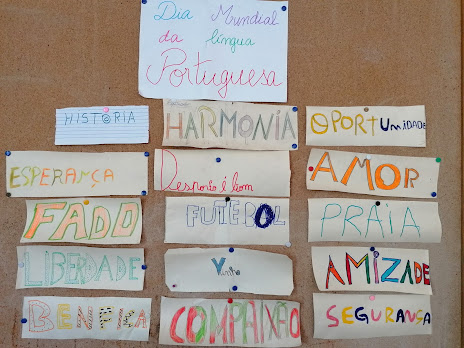 Dia Mundial
da língua
Portuguesa
HISTÓRIA
HARMONIA
OPORTUNIDADE
ESPERANÇA
Desporto é bom
AMOR
FADO
FUTEBOL
PRAIA
LIBERDADE
Vinho
AMIZADE
BENFICA
COMPAIXÃO
SEGURANSA